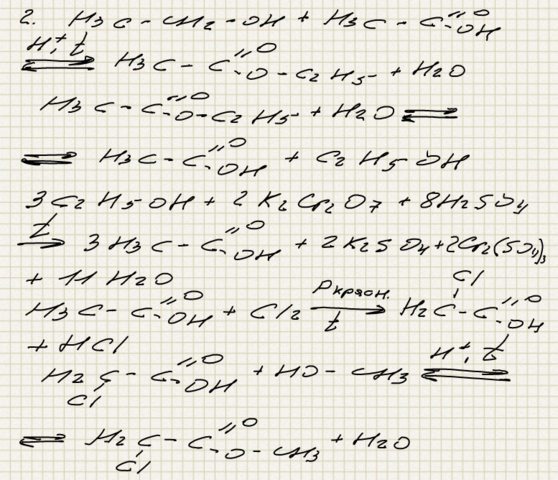 2. H3C - CH2 - OH + H3C - C(=O)OH
H+, t ⇌ H3C - C(=O)-O-C2H5 + H2O
H3C - C(=O)-O-C2H5 + H2O ⇌
⇌ H3C - C(=O)OH + C2H5OH
3C2H5OH + 2K2Cr2O7 + 8H2SO4
t → 3H3C - C(=O)OH + 2K2SO4 + 2Cr2(SO4)3
+ 11H2O
H3C - C(=O)OH + Cl2 P красн. t → H2C(Cl) - C(=O)OH
+ HCl
H2C(Cl) - C(=O)OH + HO - CH3 H+, t ⇌
⇌ H2C(Cl) - C(=O)-O-CH3 + H2O